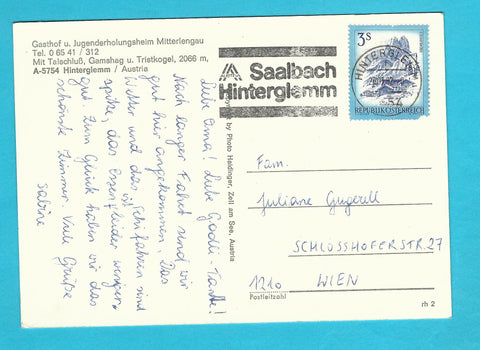 Gasthof u. Jugenderholungsheim Mitterlengau
Tel. 0 65 41 / 312
Mit Talschluß, Gamshag u. Tristkogel, 2066 m,
A-5754 Hinterglemm / Austria
Liebe Oma! Liebe Godli-Tante!
Nach langer Fahrt sind wir
gut hier angekommen. Das
Wetter und das Schifahren sind
spitze, das Essen ist leider weniger
gut. Zum Glück haben wir das
schönste Zimmer. Viele Grüße
Sabine
by Photo Haidinger, Zell am See, Austria
Saalbach
Hinterglemm
3S
REPUBLIK ÖSTERREICH
HINTERGLEMM
5754
Fam.
Juliane Gugerell
SCHLOSSHOFERSTR. 27
1210 WIEN
Postleitzahl
rh 2